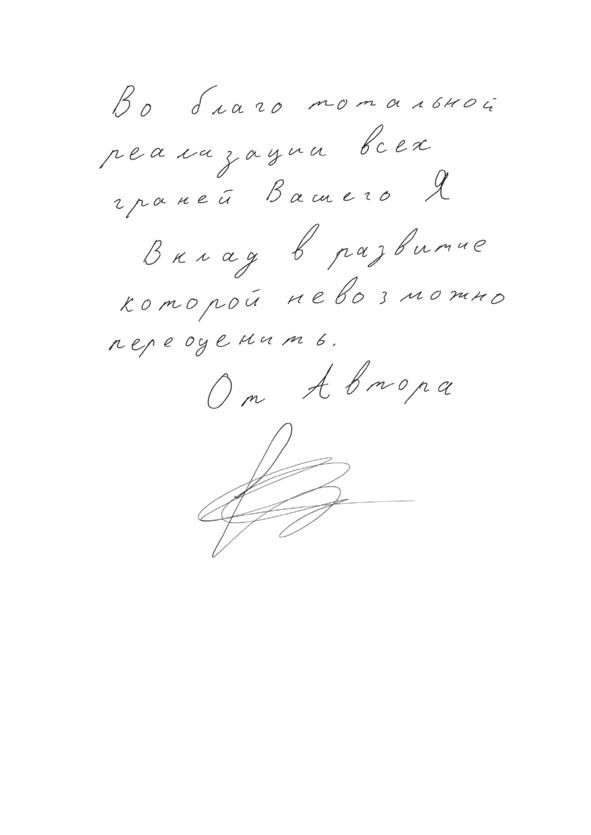 Во благо тотальной
реализации всех
граней Вашего Я
Вклад в развитие
которой невозможно
переоценить.
От Автора